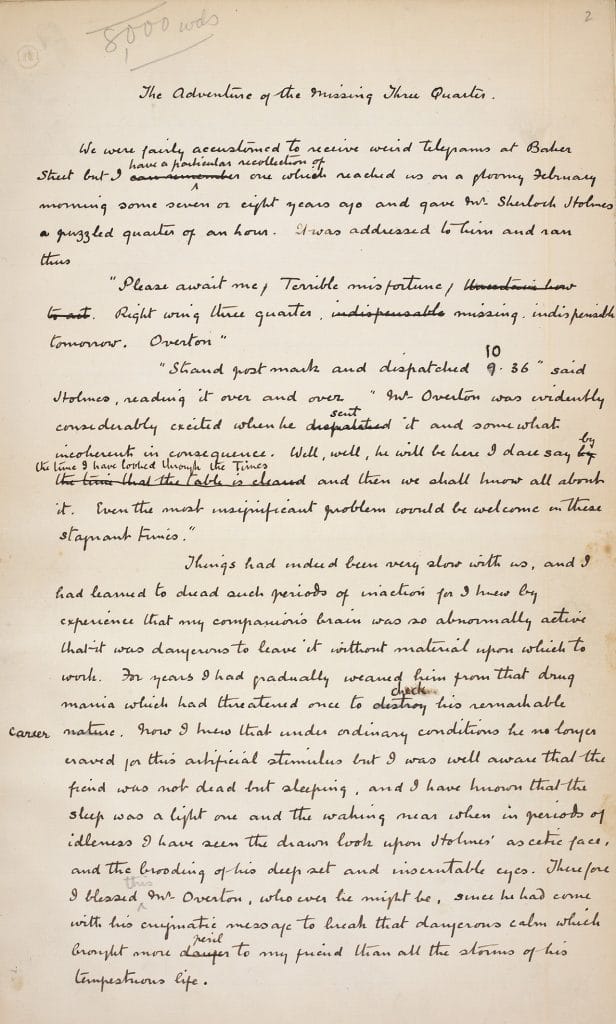 2
18
8,000 wds
The Adventure of the Missing Three Quarter.
We were fairly accustomed to receive weird telegrams at Baker
have a particular recollection of
Street but I can remember one which reached us on a gloomy February
morning some seven or eight years ago and gave Mr. Sherlock Holmes
a puzzled quarter of an hour. It was addressed to him and ran
thus
"Please await me, Terrible misfortune, Uncertain how
to act. Right wing three quarter, indispensable missing. indispensible
tomorrow. Overton"
10
"Strand post mark and dispatched 9.36" said
Holmes, reading it over and over "Mr Overton was evidently
sent
considerably excited when he dispatched it and somewhat
incoherent in consequence. Well, well, he will be here I dare say by by
the time I have looked through the Times
the time that the table is cleared and then we shall know all about
it. Even the most insignificant problem would be welcome in these
stagnant times."
Things had indeed been very slow with us, and I
had learned to dread such periods of inaction for I knew by
experience that my companion's brain was so abnormally active
that it was dangerous to leave it without material upon which to
work. For years I had gradually weaned him from that drug
check
mania which had threatened once to destroy his remarkable
career nature. Now I knew that under ordinary conditions he no longer
craved for this artificial stimulus but I was well aware that the
fiend was not dead but sleeping, and I have known that the
sleep was a light one and the waking near when in periods of
idleness I have seen the drawn look upon Holmes' ascetic face,
and the brooding of his deep set and inscrutable eyes. Therefore
this
I blessed Mr. Overton, who ever he might be, since he had come
with his enigmatic message to break that dangerous calm which
peril
brought more danger to my friend than all the storms of his
tempestuous life.